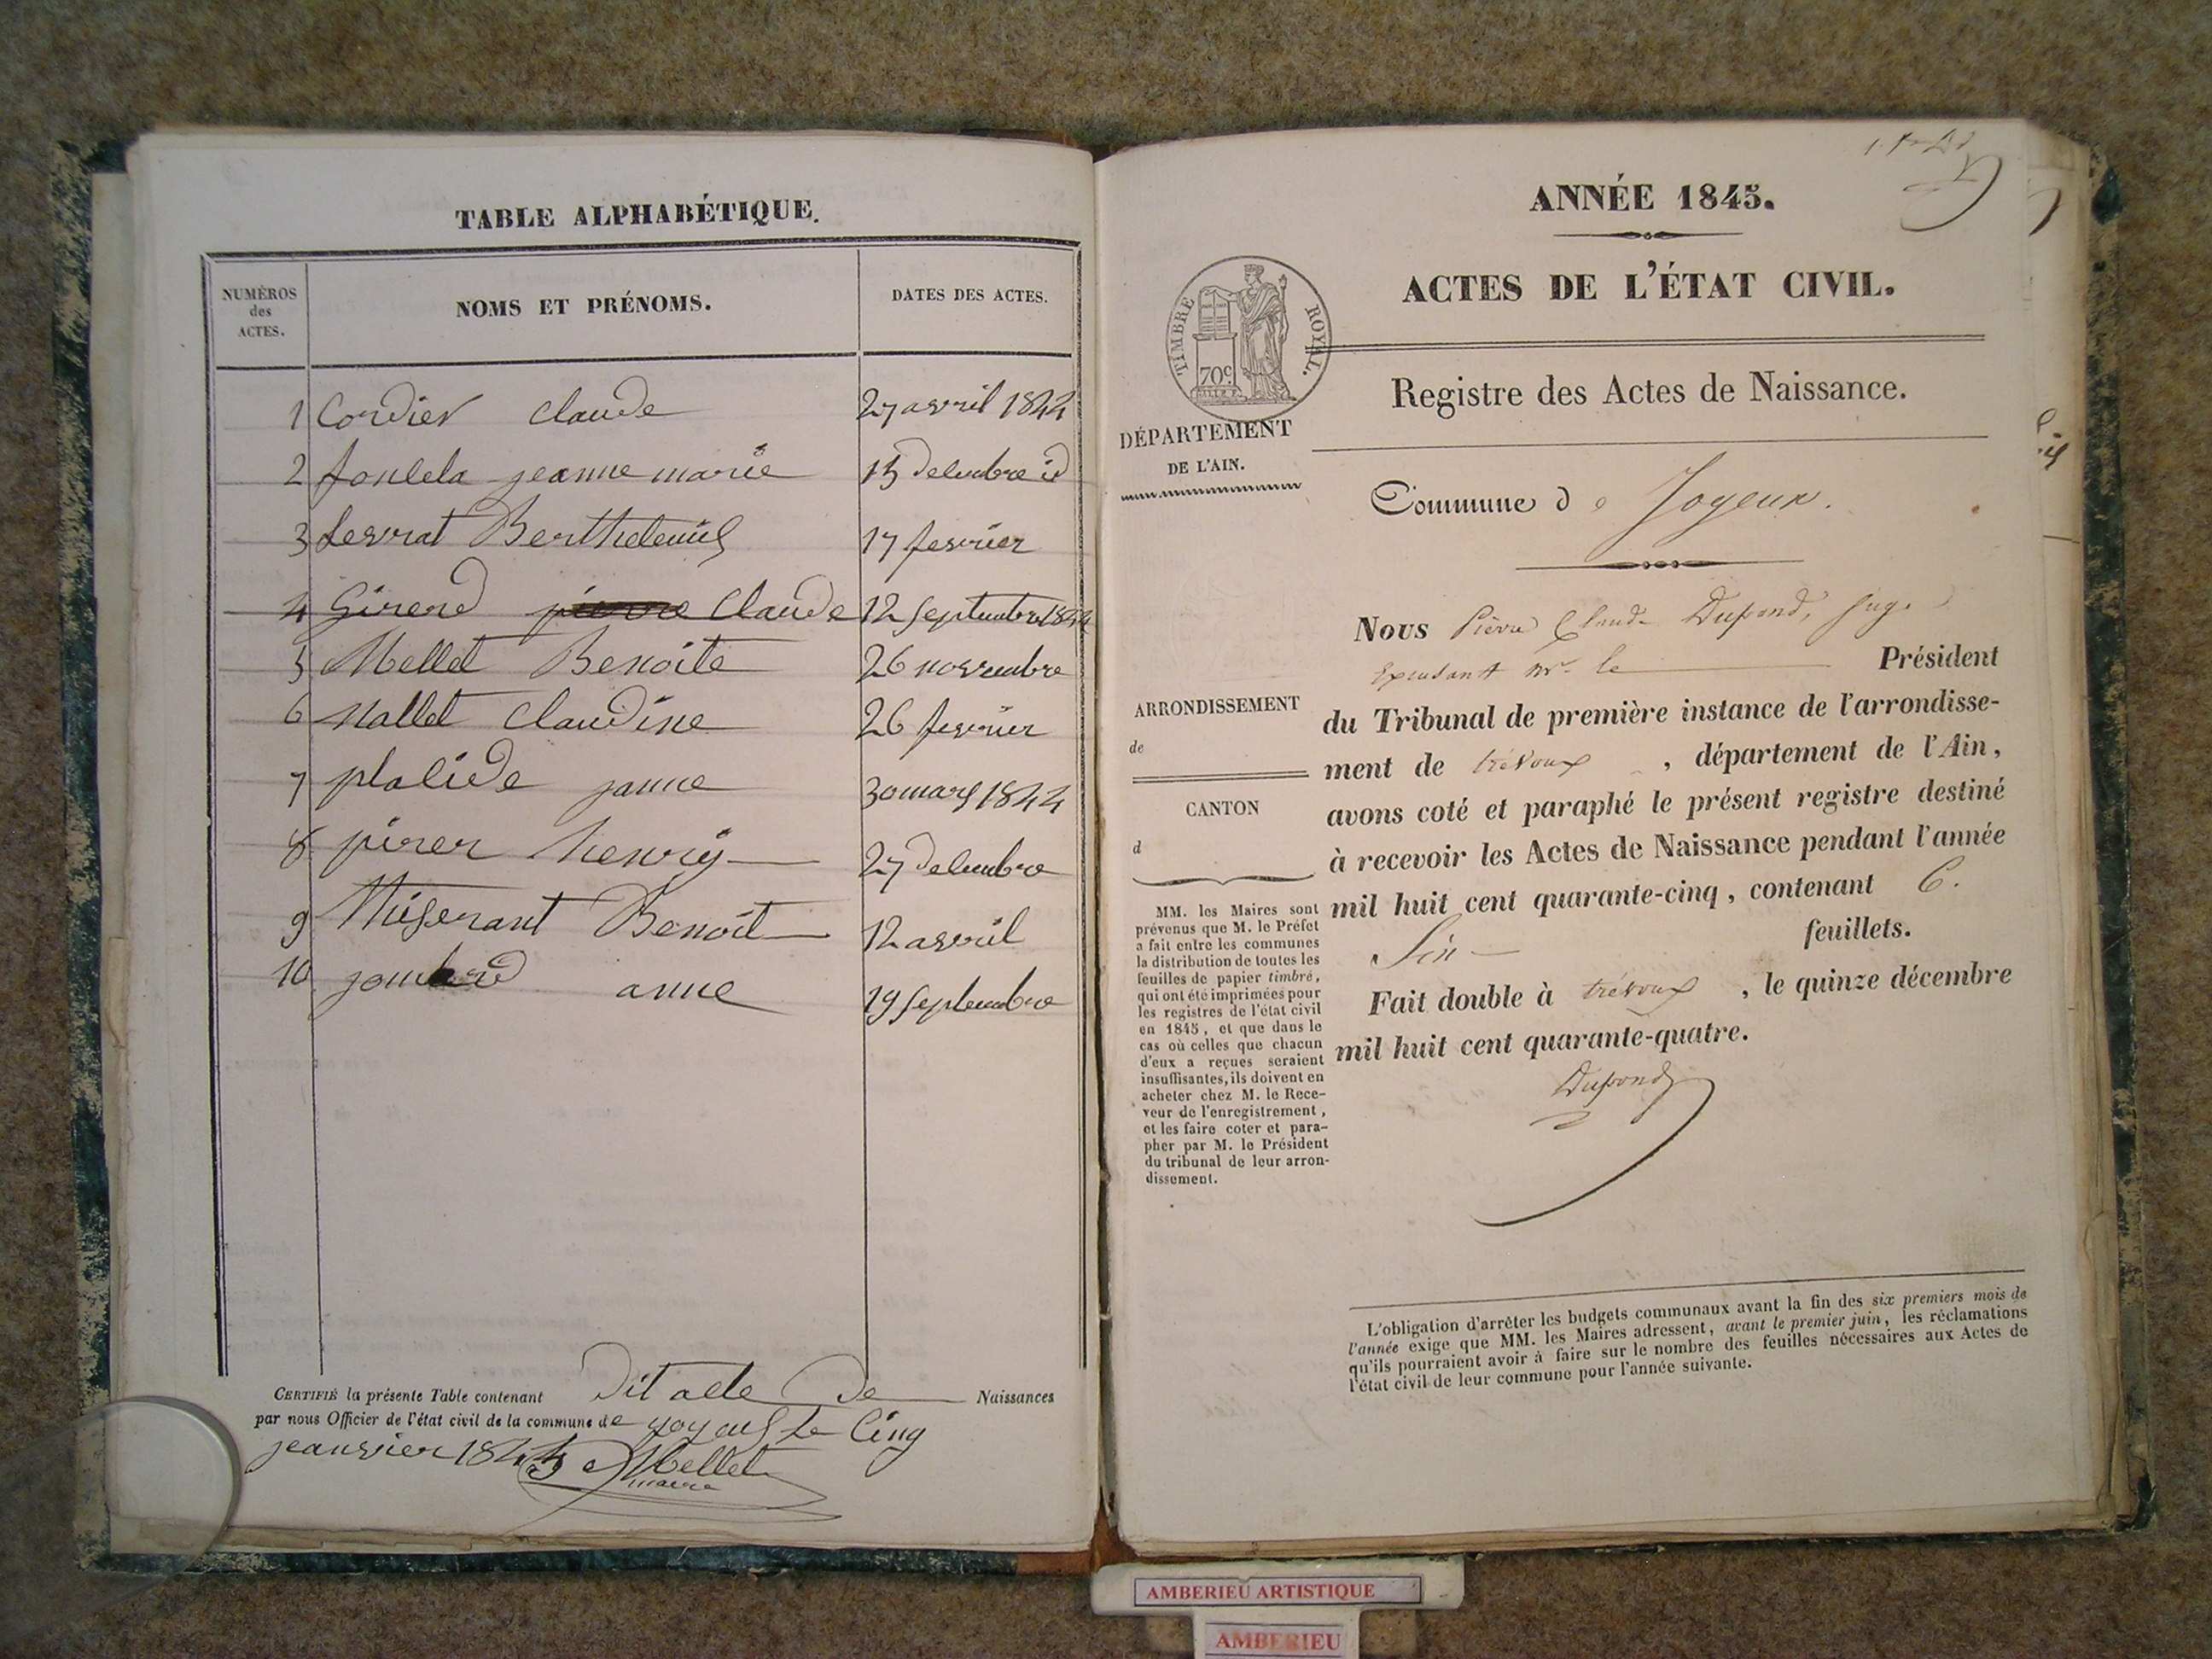 TABLE ALPHABÉTIQUE.
NUMÉROS
des
ACTES.
NOMS ET PRÉNOMS.
DATES DES ACTES.
1 Cordier Claude 27 avril 1844
2 jeanne marie 15 decembre id
3 Levrat 17 fevrier
4 Girerd pierre Claude 12 septembre 1844
5 Mellet Benoite 26 novembre
6 Nallet Claudine 26 fevrier
7 plalide janne 30 mars 1844
8 pirer henrij 27 decembre
9 Benoit 12 avril
10 anne 19 septembre
CERTIFIÉ la présente Table contenant Dit acte De Naissances
par nous Officier de l'état civil de la commune de le Cinq
jeanvier 1845 Mellet
maire
ANNÉE 1845.
ACTES DE L'ÉTAT CIVIL.
TIMBRE ROYAL.
70c
Registre des Actes de Naissance.
DÉPARTEMENT
DE L'AIN.
Commune de Joyeux.
Nous Pierre Claude Dupond, juge
mr le Président
du Tribunal de première instance de l'arrondisse-
ment de trévoux, département de l'Ain,
avons coté et paraphé le présent registre destiné
à recevoir les Actes de Naissance pendant l'année
mil huit cent quarante-cinq, contenant 6.
Six feuillets.
Fait double à trévoux, le quinze décembre
mil huit cent quarante-quatre.
Dupond
ARRONDISSEMENT
de
CANTON
d
MM. les Maires sont
prévenus que M. le Préfet
a fait entre les communes
la distribution de toutes les
feuilles de papier timbré,
qui ont été imprimées pour
les registres de l'état civil
en 1845, et que dans le
cas où celles que chacun
d'eux a reçues seraient
insuffisantes, ils doivent en
acheter chez M. le Rece-
veur de l'enregistrement,
et les faire coter et para-
pher par M. le Président
du tribunal de leur arron-
dissement.
L'obligation d'arrêter les budgets communaux avant la fin des six premiers mois de
l'année exige que MM. les Maires adressent, avant le premier juin, les réclamations
qu'ils pourraient avoir à faire sur le nombre des feuilles nécessaires aux Actes de
l'état civil de leur commune pour l'année suivante.
AMBERIEU ARTISTIQUE
AMBERIEU